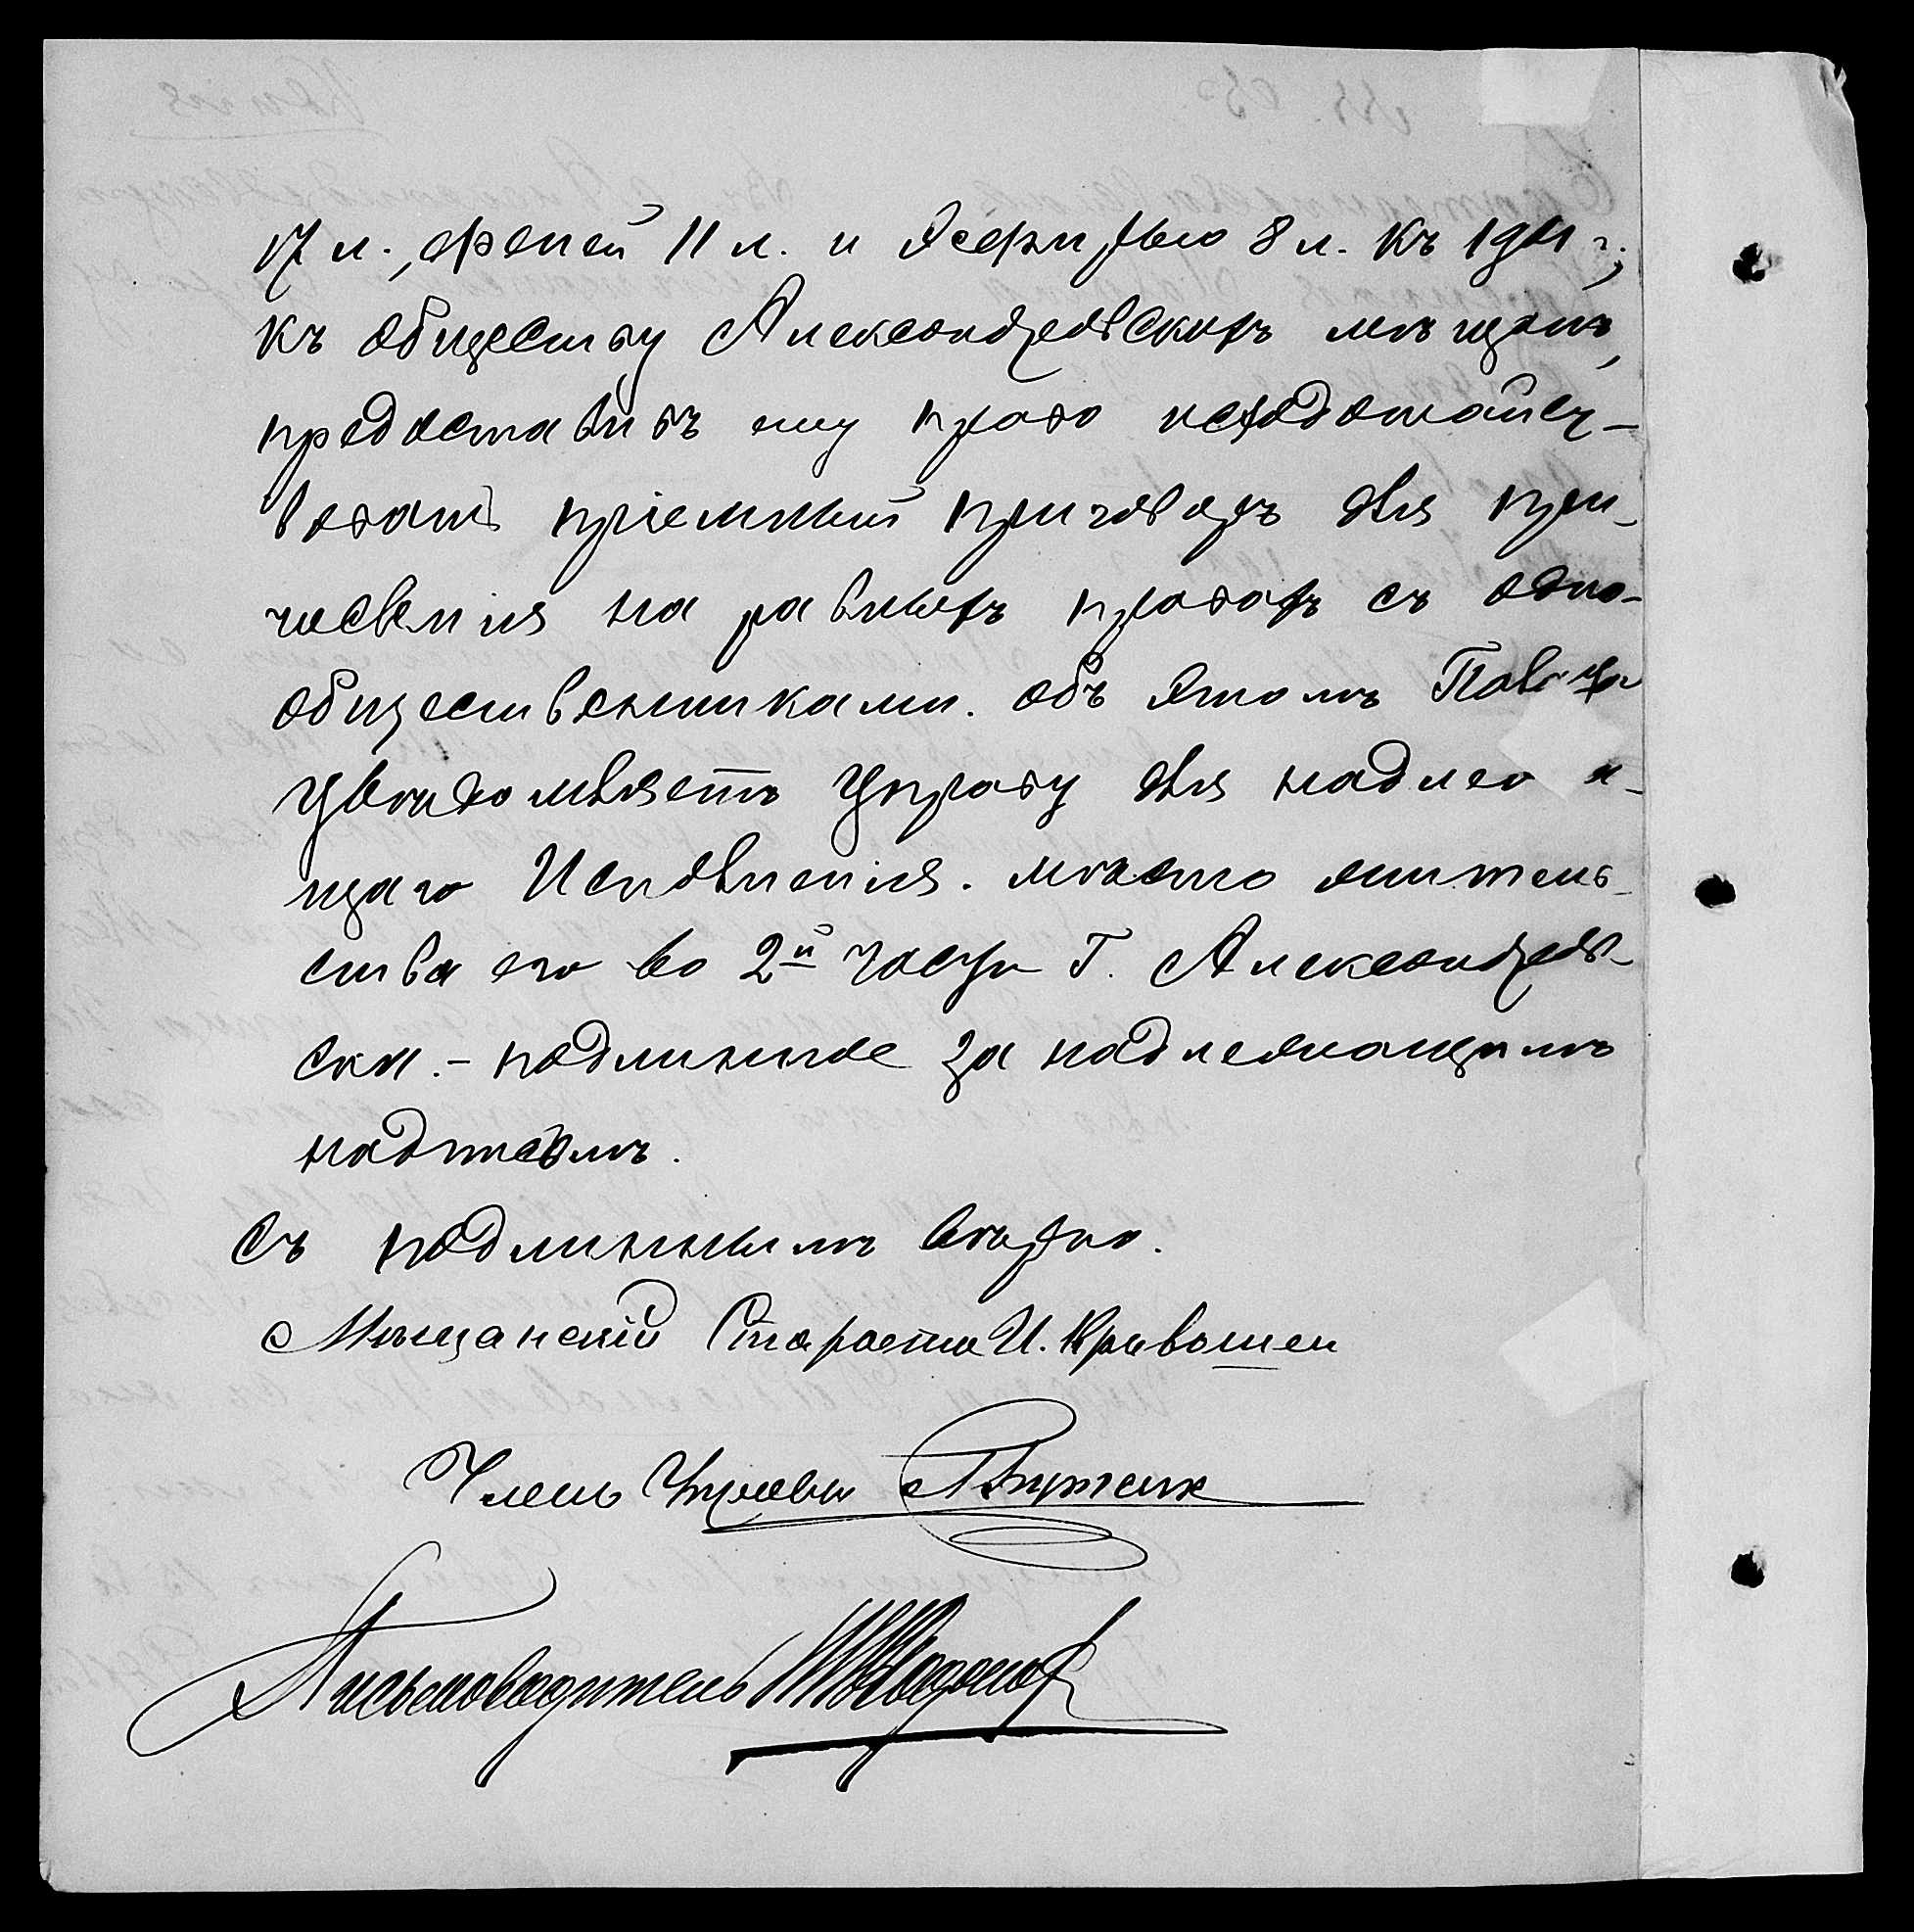 17 л., Феней 11 л. и дочерью 8 л. къ 1911 г.,
къ обществу Александровскихъ мѣщанъ,
предоставивъ ему право исходатайст-
вовать пріемный приговоръ для при-
численія на равныхъ правахъ съ одно-
общественниками. объ этомъ Палата
увѣдомляетъ Управу для надлежа-
щаго Исполненія. мѣсто житель-
ства его во 2й части Г. Александров-
ска. – подлинное за надлежащимъ
подписомъ.
Съ подлиннымъ вѣрно.
Мѣщанскій Староста И. Кривошеи
Членъ Управы
Письмоводитель